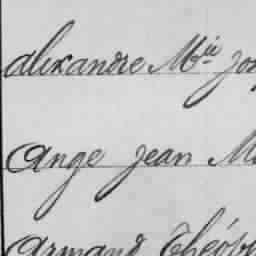 alexandre Mie Jos
Ange Jean Ma
Armand Théop